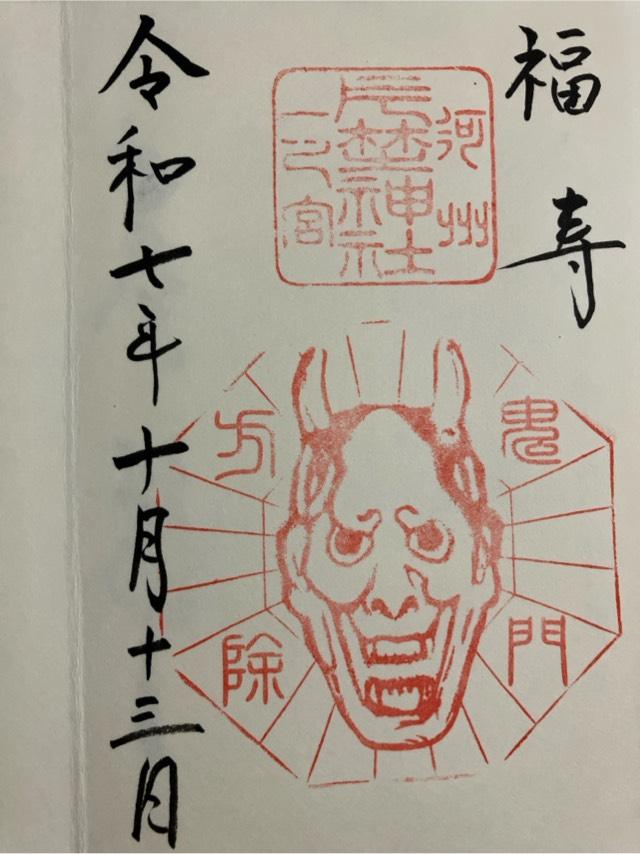 福寿
河州
片埜神社
一之宮
鬼門
方除
令和七年十月十三月